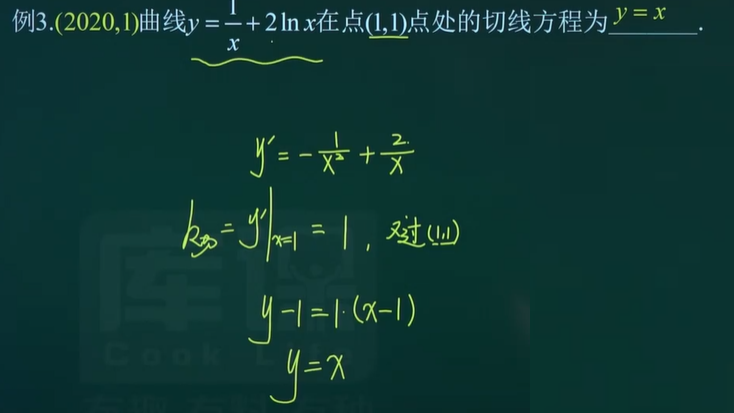 例3.(2020,1)曲线y=1/x+2lnx在点(1,1)点处的切线方程为 y=x .
y′=-1/x²+2/x
k切=y′|x=1=1, 又过(1,1)
y-1=1·(x-1)
y=x
库课
Cook Life